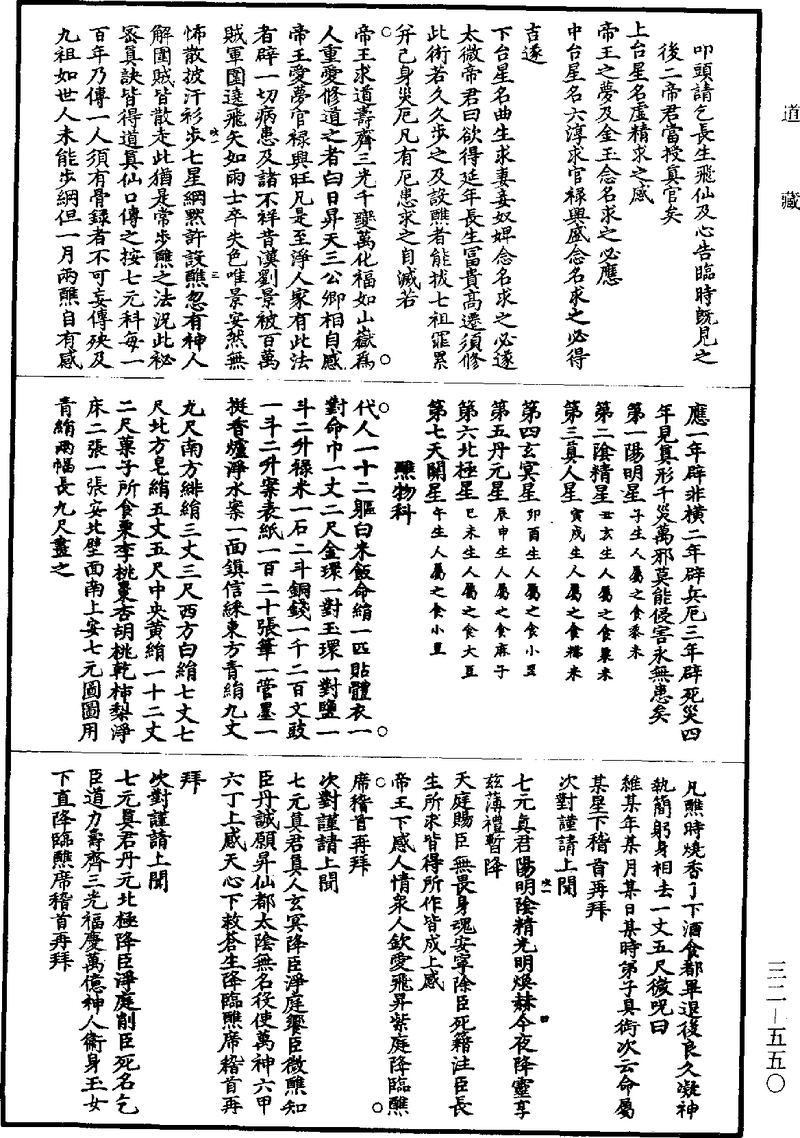 道藏
叩頭請乞長生飛仙及心告臨時既見之
後二帝君當授真官矣
上台星名虛精求之感
帝王之夢及金玉念名求之必應
中台星名六淳求官祿興盛念名求之必得
吉遂
下台星名曲生求妻妾奴婢念名求之必遂
太微帝君曰欲得延年長生富貴高遷須修
此術若久久步之及設醮者能拔七祖罪累
并己身災厄凡有厄患求之自滅若
帝王求道壽齊三光千變萬化福如山嶽為
人重愛修道之者白日昇天三公卿相自感
帝王愛夢官祿興旺凡是至淨人家有此法
者辟一切病患及諸不祥昔漢劉景被百萬
賊軍圍遶飛矢如雨士卒失色唯景安然無
怖散披汗衫步七星綱默許設醮忽有神人
解圍賊皆散走此猶是常步醮之法況此祕
密真訣皆得道真仙口傳之按七元科每一
百年乃傳一人須有骨錄者不可妄傳殃及
九祖如世人未能步綱但一月兩醮自有感
應一年辟非橫二年辟兵厄三年辟死災四
年見真形千災萬邪莫能侵害永無患矣
第一陽明星子生人屬之食黍米
第二陰精星丑亥生人屬之食粟米
第三真人星寅戌生人屬之食糯米
第四玄冥星卯酉生人屬之食小豆
第五丹元星辰申生人屬之食麻子
第六北極星巳未生人屬之食大豆
第七天關星午生人屬之食小豆
醮物科
代人一十二軀白米飯命絹一匹貼體衣一
對命巾一丈二尺金環一對玉環一對鹽一
斗二升祿米一石二斗銅錢一千二百文豉
一斗二升案表紙一百二十張筆一管墨一
挺香爐淨水案一面鎮信綵東方青絹九丈
九尺南方緋絹三丈三尺西方白絹七丈七
尺北方皂絹五丈五尺中央黃絹一十二丈
二尺菓子所食棗李桃栗杏胡桃乾柿梨淨
床二張一張安北壁面南上安七元圖圖用
青絹兩幅長九尺畫之
凡醮時燒香了下酒食都畢退後良久凝神
執簡躬身相去一丈五尺微咒曰
維某年某月某日某時弟子具銜次云命屬
某星下稽首再拜
次對謹請上聞
七元真君陽明陰精光明煥赫今夜降靈享
茲薄禮暫降
天庭賜臣無畏身魂安寧除臣死籍注臣長
生所求皆得所作皆成上感
帝王下感人情眾人欽愛飛昇紫庭降臨醮
席稽首再拜
次對謹請上聞
七元真君真人玄冥降臣淨庭饗臣微醮知
臣丹誠願昇仙都太陰無名役使萬神六甲
六丁上感天心下救蒼生降臨醮席稽首再
拜
次對謹請上聞
七元真君丹元北極降臣淨庭削臣死名乞
臣道力壽齊三光福慶萬億神人衛身玉女
下直降臨醮席稽首再拜
三二-五五〇